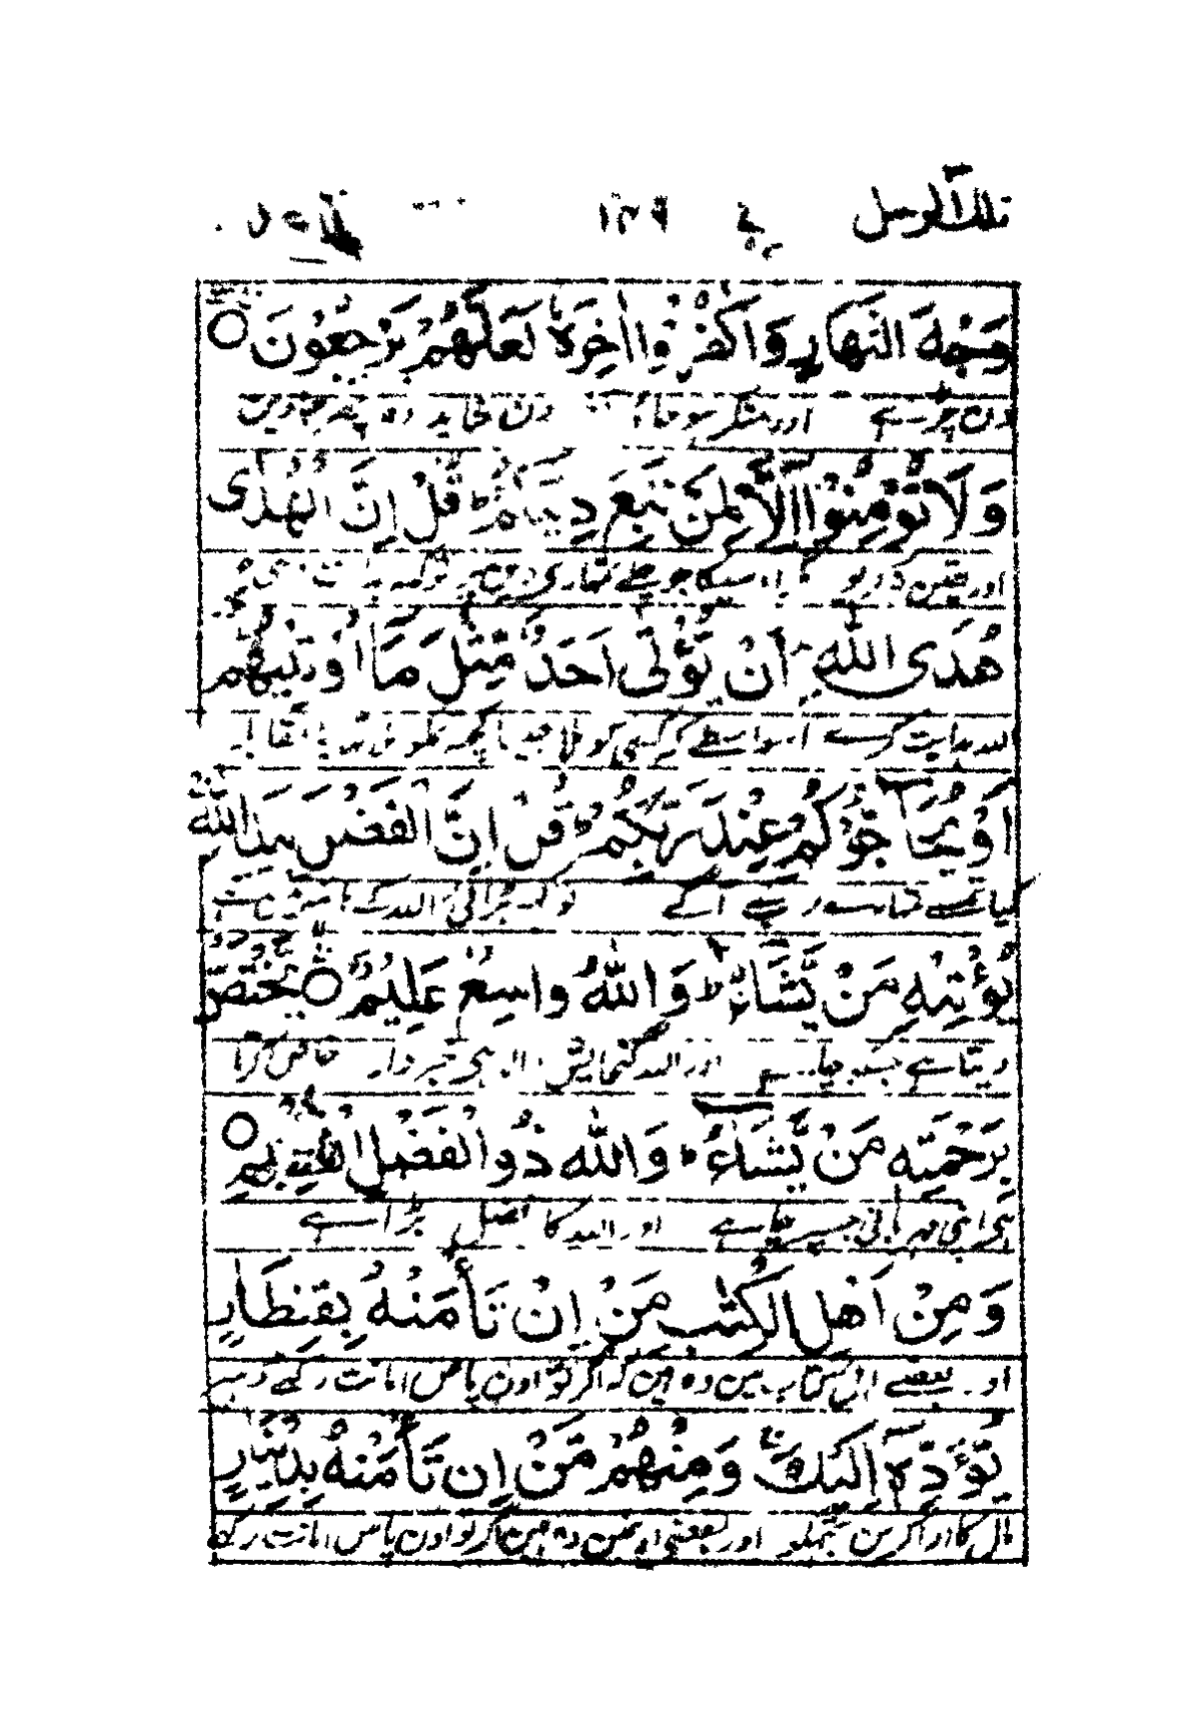 تلك الرسل ۱۲۹
وَجْهَ النَّهَارِ وَاكْفُرُوا اٰخِرَهٗ لَعَلَّهُمْ يَرْجِعُوْنَ
دن چڑہے اور منکر ہو جاؤ دن شاید وہ پھر جاویں
وَلَا تُؤْمِنُوْٓا اِلَّا لِمَنْ تَبِعَ دِيْنَكُمْ ؕ قُلْ اِنَّ الْهُدٰى
اور یقین نکریو جو چلے تمہاری دین پر تو کہہ
هُدَى اللّٰهِ اَنْ يُّؤْتٰٓى اَحَدٌ مِّثْلَ مَآ اُوْتِيْتُمْ
الله ہدایت کرے اسواسطے کہ کسی کو ملا
اَوْ يُحَآجُّوْكُمْ عِنْدَ رَبِّكُمْ ؕ قُلْ اِنَّ الْفَضْلَ بِيَدِ اللّٰهِ
کیا تمسے تمہارے رب کے آگے تو کہہ بڑائی الله کے
يُؤْتِيْهِ مَنْ يَّشَآءُ ؕ وَاللّٰهُ وَاسِعٌ عَلِيْمٌ يَّخْتَصُّ
دیتا ہے جسکو چاہے اور الله گنجایش والا ہی خبردار خاص کرتا
بِرَحْمَتِهٖ مَنْ يَّشَآءُ ؕ وَاللّٰهُ ذُو الْفَضْلِ الْعَظِيْمِ
ہی اپنی مہربانی جسپر چاہے اور الله کا فضل بڑا ہے
وَمِنْ اَهْلِ الْكِتٰبِ مَنْ اِنْ تَأْمَنْهُ بِقِنْطَارٍ
اور بعضے اہل کتاب میں وہ ہیں کہ اگر تو اون پاس امانت رکھے ڈہیر
يُّؤَدِّهٖٓ اِلَيْكَ ۚ وَمِنْهُمْ مَّنْ اِنْ تَأْمَنْهُ بِدِيْنَارٍ
مال کا ادا کریں تجہکو اور بعضی انمیں وہ ہیں اگر تو اون پاس امانت رکھے